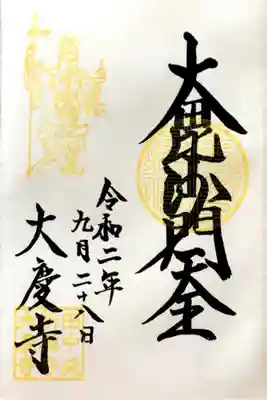 大毘沙門天
令和二年
九月二十八日
大慶寺